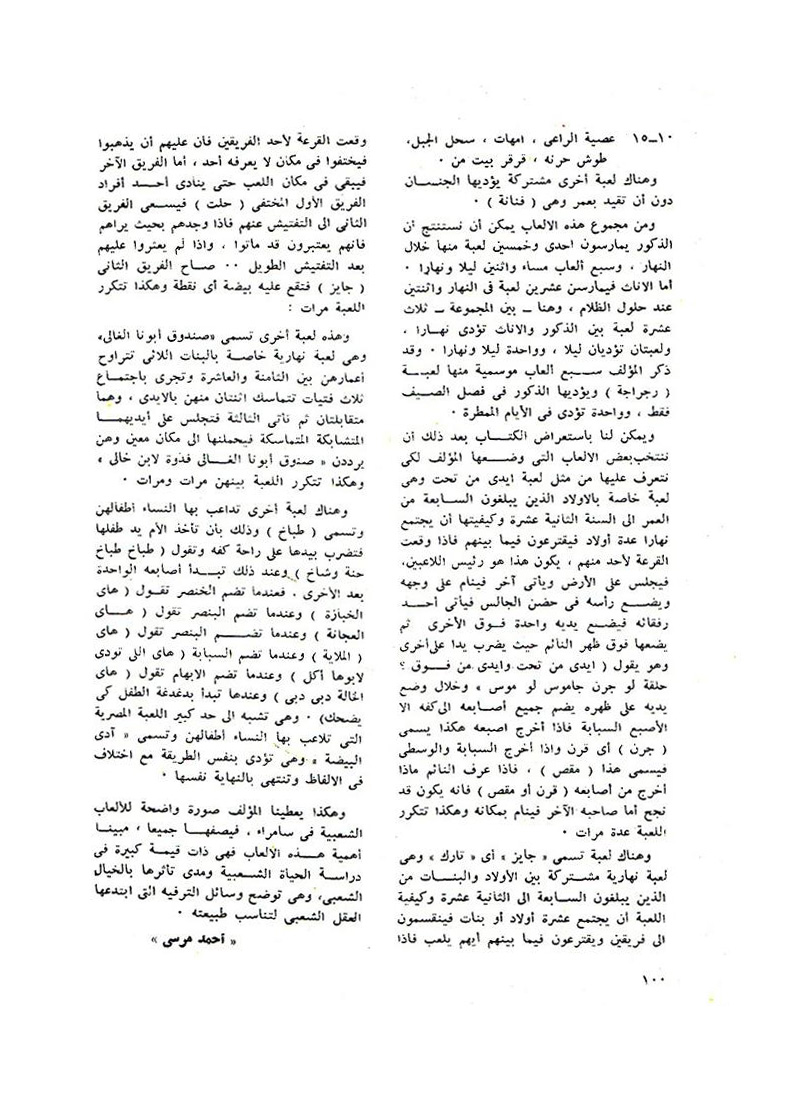 ١٠ــ١٥ عصية الراعى ، امهات ، سحل الجبل،
طوش حرنه ، قرقر بيت من ٠
وهناك لعبة أخرى مشتركة يؤديها الجنسان
دون أن تقيد بعمر وهى ( فنانة ) ٠
ومن مجموع هذه الالعاب يمكن أن نستنتج أن
الذكور يمارسون احدى وخمسين لعبة منها خلال
النهار ، وسبع ألعاب مساء واثنتين ليلا ونهارا ٠
أما الاناث فيمارسن عشرين لعبة فى النهار واثنتين
عند حلول الظلام ، وهنا ــ بين المجموعة ــ ثلاث
عشرة لعبة بين الذكور والاناث تؤدى نهـارا ،
ولعبتان تؤديان ليلا ، وواحدة ليلا ونهارا ٠ وقد
ذكر المؤلف سـبع ألعاب موسمية منها لعبـة
( رجراجة ) ويؤديها الذكور فى فصل الصـيف
فقط ، وواحدة تؤدى فى الأيام الممطرة ٠
ويمكن لنا باستعراض الكتـاب بعد ذلك أن
ننتخب بعض الالعاب التى وضـعها المؤلف لكى
نتعرف عليها من مثل لعبة ايدى من تحت وهى
لعبة خاصة بالاولاد الذين يبلغون السـابعة من
العمر الى السنة الثانية عشرة وكيفيتها أن يجتمع
نهارا عدة أولاد فيقترعون فيما بينهم فاذا وقعت
القرعة لأحد منهم ، يكون هذا هو رئيس اللاعبين،
فيجلس على الأرض ويأتى آخر فينام على وجهه
ويضـع رأسه فى حضن الجالس فيأتى أحـد
رفقائه فيضـع يديه واحدة فـوق الأخرى ثم
يضعها فوق ظهر النائم حيث يضرب يدا على أخرى
وهو يقول ( ايدى من تحت وايدى من فـوق ؟
حلقة لو جرن جاموس لو موس » وخلال وضع
يديه على ظهره يضم جميع أصـابعه الى كفه الا
الأصبع السبابة فاذا أخرج اصبعه هكذا يسمى
( جرن ) أى قرن واذا أخرج السبابة والوسطى
فيسمى هذا ( مقص ) ، فاذا عرف النائم ماذا
أخرج من أصابعه ( قرن أو مقص ) فانه يكون قد
نجح أما صاحبه الآخر فينام بمكانه وهكذا تتكرر
اللعبة عدة مرات ٠
وهناك لعبة تسمى « جايز » أى « تارك » وهى
لعبة نهارية مشـتركة بين الأولاد والبنـات من
الذين يبلغون السـابعة الى الثانية عشرة وكيفية
اللعبة أن يجتمع عشرة أولاد أو بنات فينقسمون
الى فريقين ويقترعون فيما بينهم أيهم يلعب فاذا
وقعت القرعة لأحد الفريقين فان عليهم أن يذهبوا
فيختفوا فى مكان لا يعرفه أحد ، أما الفريق الآخر
فيبقى فى مكان اللعب حتى ينادى أحـد أفراد
الفريق الأول المختفى ( حلت ) فيسـعى الفريق
الثانى الى التفتيش عنهم فاذا وجدهم بحيث يراهم
فانهم يعتبرون قد ماتوا ، واذا لم يعثروا عليهم
بعد التفتيش الطويل ٠٠ صـاح الفريق الثانى
( جايز ) فتقع عليه بيضة أى نقطة وهكذا تتكرر
اللعبة مرات :
وهذه لعبة أخرى تسمى «صندوق أبونا الغالى»
وهى لعبة نهارية خاصـة بالبنات اللائى تتراوح
أعمارهن بين الثامنة والعاشرة وتجرى باجتماع
ثلاث فتيات تتماسك اثنتان منهن بالايدى ، وهما
متقابلتان ثم تأتى الثالثة فتجلس على أيديهمـا
المتشابكة المتماسكة فيحملنها الى مكان معين وهن
يرددن « صنوق أبونا الغـالى فذوة لابن خالى »
وهكذا تتكرر اللعبة بينهن مرات ومرات ٠
وهناك لعبة أخرى تداعب بها النساء أطفالهن
وتسمى ( طباخ ) وذلك بأن تأخذ الأم يد طفلها
فتضرب بيدها على راحة كفه وتقول ( طباخ طباخ
حنة وشاخ ) وعند ذلك تبـدأ أصابعه الواحدة
بعد الأخرى ٠ فعندما تضم الخنصر تقـول ( هاى
الخبازة ) وعندما تضم البنصر تقول ( هـاى
العجانة ) وعندما تضـم البنصر تقول ( هاى
( الملاية ) وعندما تضم السبابة ( هاى اللى تودى
لابوها أكل ) وعندما تضم الابهام تقول ( هاى
الخالة دبى دبى ) وعندها تبدأ بدغدغة الطفل كى
يضحك) ٠ وهى تشبه الى حد كبير اللعبة المصرية
التى تلاعب بها النساء أطفالهن وتسمى « آدى
البيضة » وهى تؤدى بنفس الطريقة مع اختلاف
فى الالفاظ وتنتهى بالنهاية نفسها ٠
وهكذا يعطينا المؤلف صورة واضحة للألعاب
الشعبية فى سامراء ، فيصفهـا جميعا ، مبينـا
أهمية هـذه الالعاب فهى ذات قيمـة كبيرة فى
دراسـة الحياة الشـعبية ومدى تأثرها بالخيال
الشعبى، وهى توضح وسائل الترفيه التى ابتدعها
العقل الشعبى لتناسب طبيعته ٠
« أحمد مرسى »
١٠٠